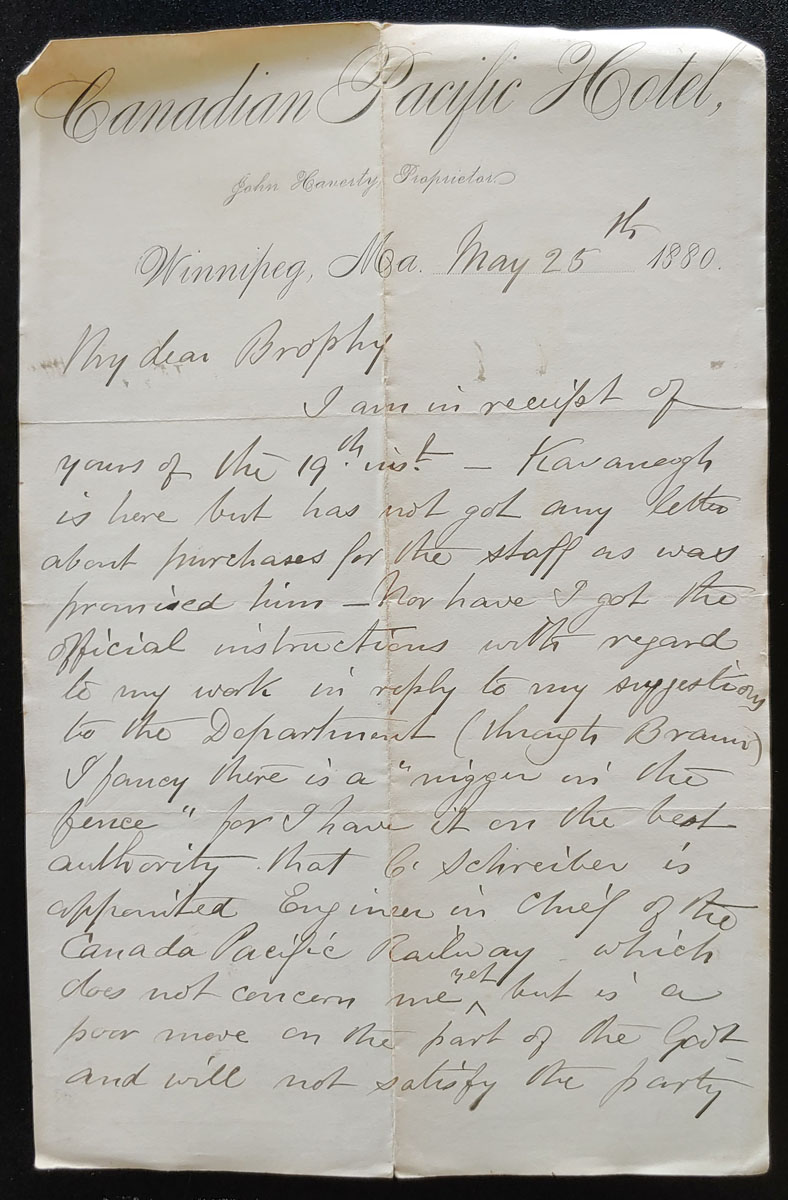 Canadian Pacific Hotel,
John Haverty Proprietor
Winnipeg, Ma. May 25th 1880.
My dear Brophy
I am in receipt of
yours of the 19th. inst. – Kavanagh
is here but has not got any letter
about purchases for the staff as was
promised him – Nor have I got the
official instructions with regard
to my work in reply to my suggestions
to the Department (through Braun)
I fancy there is a "nigger in the
fence" for I have it on the best
authority that C. Schreiber is
appointed Engineer in Chief of the
Canada Pacific Railway which
does not concern me yet but is a
poor move on the part of the Govt
and will not satisfy the party